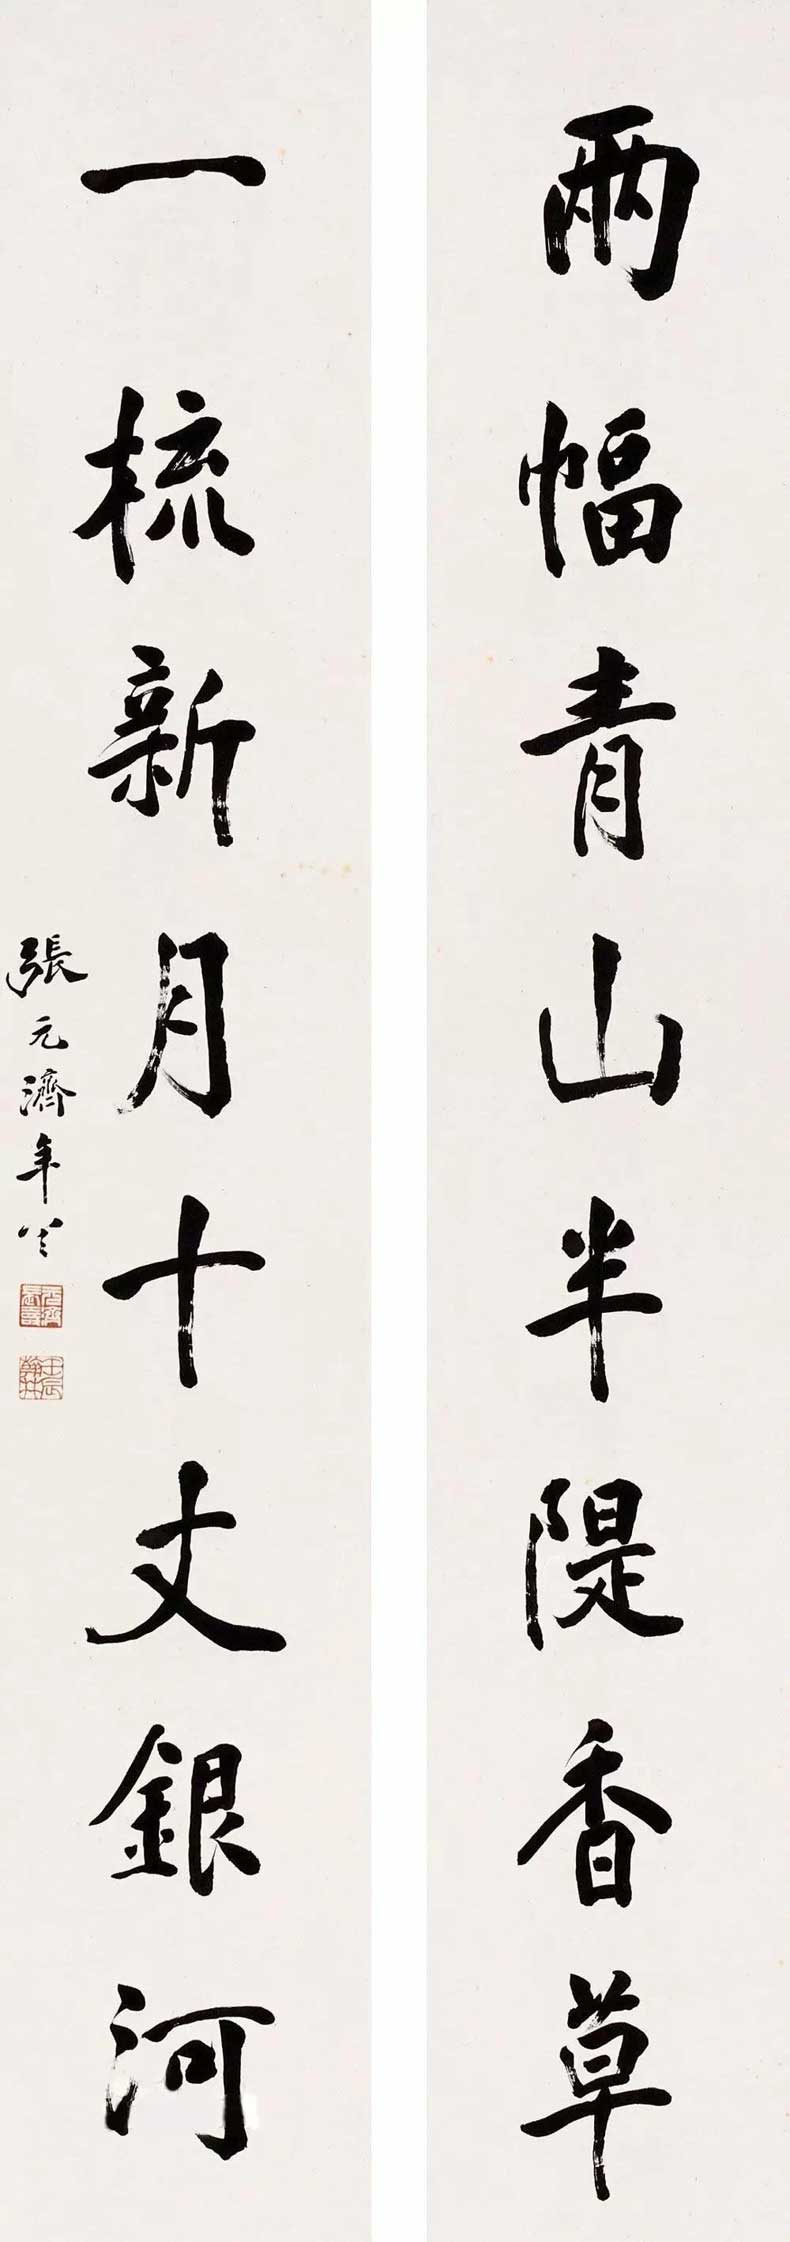 兩幅青山半隄香草
一梳新月十丈銀河
張元濟年八
壬辰翰林